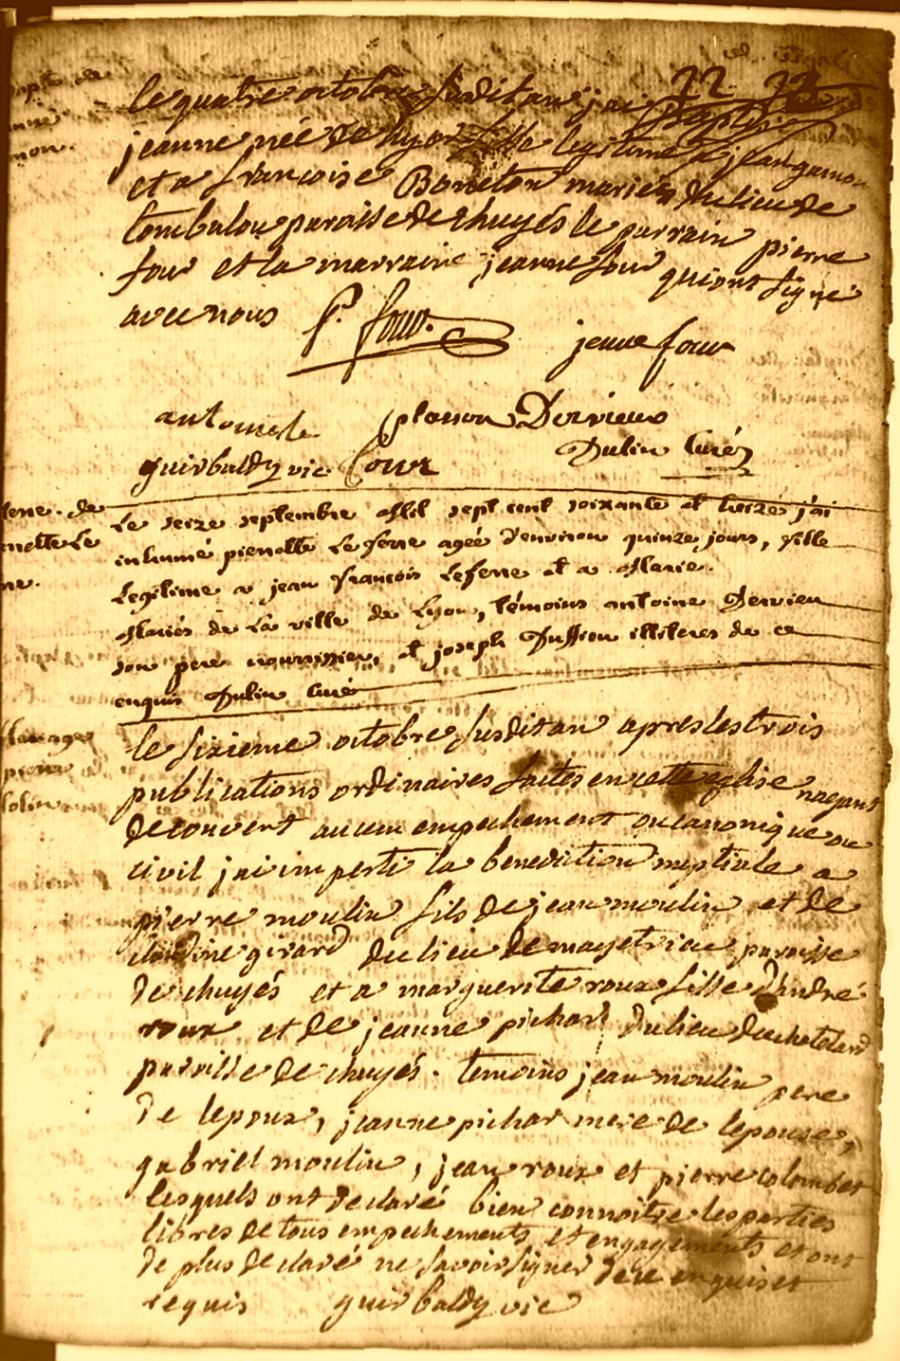 le quatre octobre susdit an j'ai baptisé
jeanne née de hyer fille legitime a jean
et a francoise Boneton mariés du lieu de
tombalou paroisse de chuyés le parrain pierre
four et la marraine jeanne four qui ont signé
avec nous P. four. jeanne four
antoine planson Dervieux
guirbaldy vic Dulin Curé
Le seize septembre Mil sept cent soixante et treize j'ai
inhumé pierrotte Leferre agée d'environ quinze jours, fille
Legitime a jean françois Leferre et a Marie.
Mariés de La ville de Lyon, témoins antoine Dervieu
son pere nourrissier, et joseph illiteres de ce
enquis Dulin curé
le sixieme octobre susdit an apres les trois
publications ordinaires faites en cette eglise nayant
decouvert aucun empechement ou canonique ou
civil jai imperti la benediction nuptiale a
pierre moulin fils de jean moulin et de
claudine girard du lieu de paroisse
de chuyés et a marguerite roux fille d'andré
roux et de jeanne pichard du lieu du chatelard
paroisse de chuyés. temoins jean moulin pere
de lepoux, jeanne pichar mere de lepouse,
gabriel moulin, jean roux et pierre colombet
lesquels ont declaré bien connoitre les parties
libres de tous empechements et engagements et ont
de plus declaré ne savoir signer de ce enquis et
requis guirbaldy vic